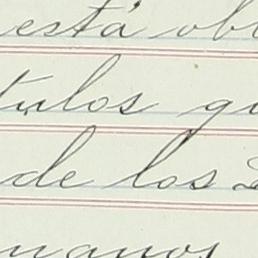 está obl
tulos qu
de los D
manos